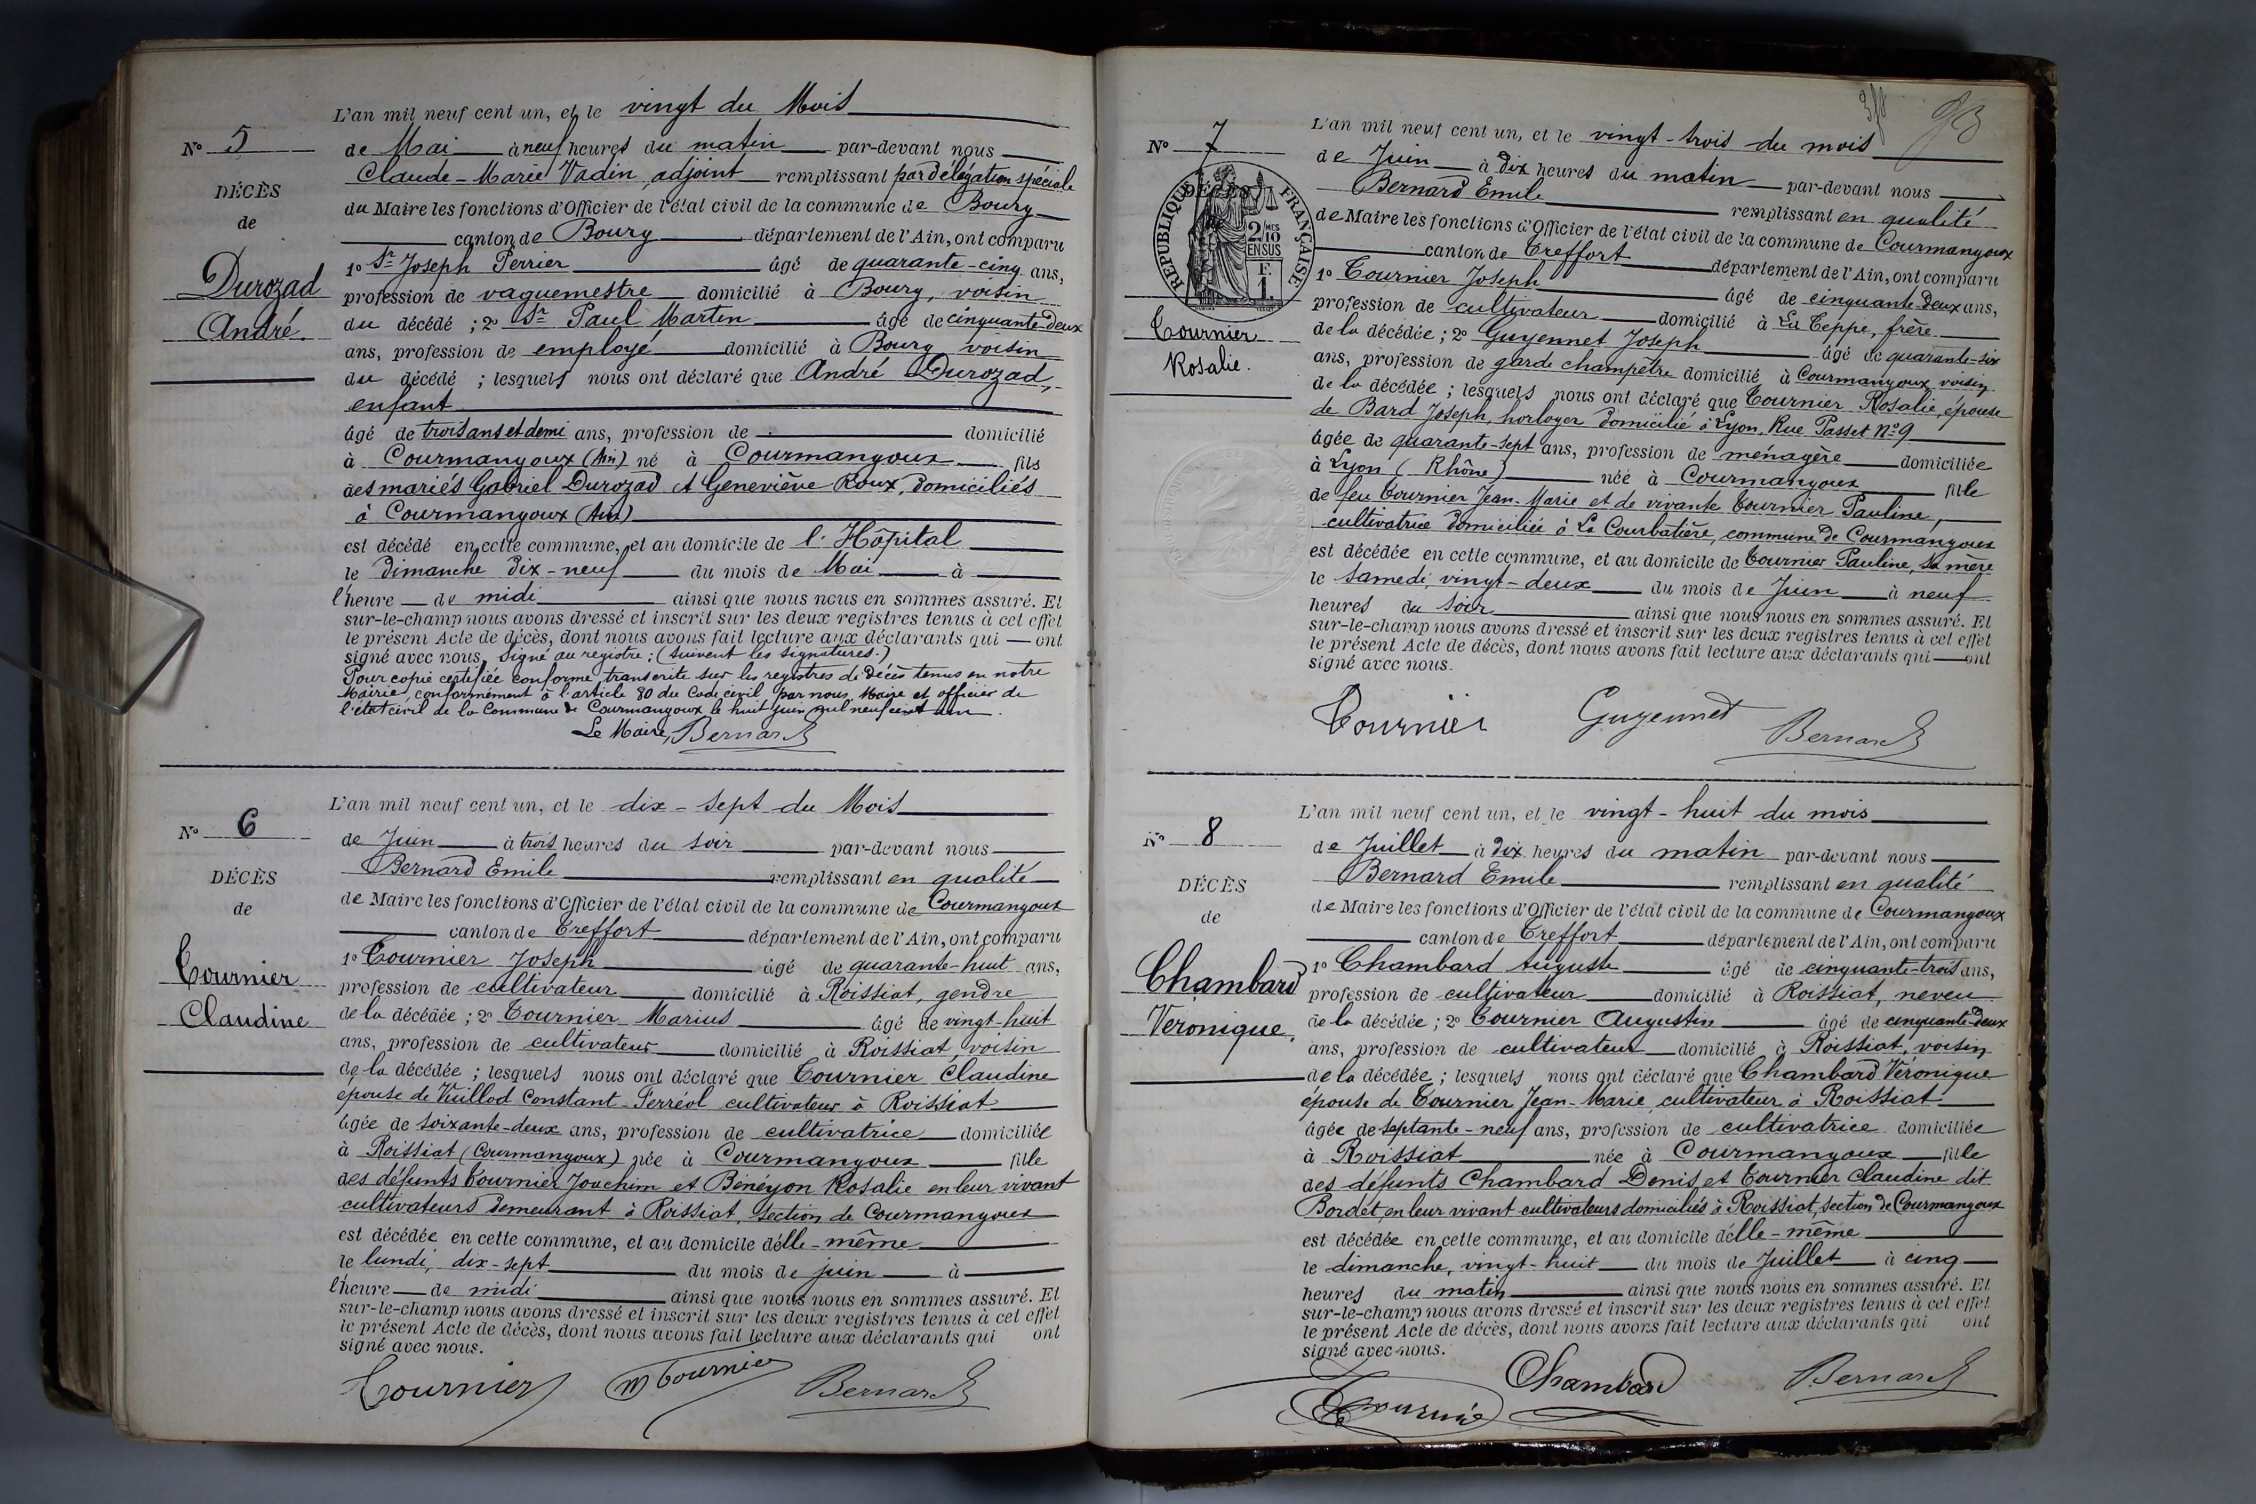 L'an mil neuf cent un, et le vingt du Mois
N° 5
de Mai à neuf heures du matin par-devant nous
Claude-Marie Vadin, adjoint remplissant par délégation spéciale
DÉCÈS
du Maire les fonctions d'Officier de l'état civil de la commune de Bourg
de
canton de Bourg département de l'Ain, ont comparu
Durozad
1° Sr Joseph Perrier âgé de quarante-cinq ans,
profession de vaguemestre domicilié à Bourg, voisin
André.
du décédé ; 2° Sr Paul Martin âgé de cinquante-deux
ans, profession de employé domicilié à Bourg voisin
du décédé ; lesquels nous ont déclaré que André Durozad,
enfant
âgé de trois ans et demi ans, profession de domicilié
à Courmangoux (Ain) né à Courmangoux fils
des mariés Gabriel Durozad et Geneviève Roux, domiciliés
à Courmangoux (Ain)
est décédé en cette commune, et au domicile de l'Hôpital
le Dimanche dix-neuf du mois de Mai à
l'heure de midi ainsi que nous nous en sommes assuré. Et
sur-le-champ nous avons dressé et inscrit sur les deux registres tenus à cet effet
le présent Acte de décès, dont nous avons fait lecture aux déclarants qui ont
signé avec nous. Signé au registre : (suivent les signatures.)
Pour copie certifiée conforme transcrite sur les registres de décès tenus en notre
Mairie, conformément à l'article 80 du Code civil, par nous, Maire et officier de
l'état civil de la Commune de Courmangoux le huit juin mil neuf cent un.
Le Maire, Bernard
L'an mil neuf cent un, et le dix-sept du Mois
N° 6
de Juin à trois heures du soir par-devant nous
Bernard Emile remplissant en qualité
DÉCÈS
de Maire les fonctions d'Officier de l'état civil de la commune de Courmangoux
de
canton de Treffort département de l'Ain, ont comparu
Tournier
1° Tournier Joseph âgé de quarante-huit ans,
profession de cultivateur domicilié à Roissiat, gendre
Claudine
de la décédée ; 2° Tournier Marius âgé de vingt-huit
ans, profession de cultivateur domicilié à Roissiat, voisin
de la décédée ; lesquels nous ont déclaré que Tournier Claudine
épouse de Vuillod Constant-Ferréol cultivateur à Roissiat
âgée de soixante-deux ans, profession de cultivatrice domiciliée
à Roissiat (Courmangoux) née à Courmangoux fille
des défunts Tournier Joachim et Bénéyon Rosalie en leur vivant
cultivateurs demeurant à Roissiat, section de Courmangoux
est décédée en cette commune, et au domicile d'elle-même
le lundi, dix-sept du mois de juin à
l'heure de midi ainsi que nous nous en sommes assuré. Et
sur-le-champ nous avons dressé et inscrit sur les deux registres tenus à cet effet
le présent Acte de décès, dont nous avons fait lecture aux déclarants qui ont
signé avec nous.
Tournier M Tournier Bernard
L'an mil neuf cent un, et le vingt-trois du mois
N° 7
de Juin à dix heures du matin par-devant nous
Bernard Emile remplissant en qualité
DÉCÈS
RÉPUBLIQUE FRANÇAISE
2/10MES
EN SUS
F.
1.
de Maire les fonctions d'Officier de l'état civil de la commune de Courmangoux
canton de Treffort département de l'Ain, ont comparu
1° Tournier Joseph âgé de cinquante deux ans,
profession de cultivateur domicilié à La Teppe, frère
Tournier
de la décédée ; 2° Guyennet Joseph âgé de quarante-six
Rosalie.
ans, profession de garde champêtre domicilié à Courmangoux, voisin
de la décédée ; lesquels nous ont déclaré que Tournier Rosalie, épouse
de Bard Joseph, horloger domicilié à Lyon, Rue Passet N° 9
âgée de quarante-sept ans, profession de ménagère domiciliée
à Lyon (Rhône) née à Courmangoux fille
de feu Tournier Jean-Marie et de vivante Tournier Pauline,
cultivatrice domiciliée à La Courbatière, commune de Courmangoux
est décédée en cette commune, et au domicile de Tournier Pauline, sa mère
le samedi, vingt-deux du mois de Juin à neuf
heures du soir ainsi que nous nous en sommes assuré. Et
sur-le-champ nous avons dressé et inscrit sur les deux registres tenus à cet effet
le présent Acte de décès, dont nous avons fait lecture aux déclarants qui ont
signé avec nous.
Tournier Guyennet Bernard
L'an mil neuf cent un, et le vingt-huit du mois
N° 8
de Juillet à dix heures du matin par-devant nous
Bernard Emile remplissant en qualité
DÉCÈS
de Maire les fonctions d'Officier de l'état civil de la commune de Courmangoux
de
canton de Treffort département de l'Ain, ont comparu
Chambard
1° Chambard Auguste âgé de cinquante-trois ans,
profession de cultivateur domicilié à Roissiat, neveu
Véronique.
de la décédée ; 2° Tournier Augustin âgé de cinquante-deux
ans, profession de cultivateur domicilié à Roissiat, voisin
de la décédée ; lesquels nous ont déclaré que Chambard Véronique
épouse de Tournier Jean-Marie, cultivateur à Roissiat
âgée de septante-neuf ans, profession de cultivatrice domiciliée
à Roissiat née à Courmangoux fille
des défunts Chambard Denis et Tournier Claudine dit
Bordet, en leur vivant cultivateurs domiciliés à Roissiat, section de Courmangoux
est décédée en cette commune, et au domicile d'elle-même
le dimanche, vingt-huit du mois de Juillet à cinq
heures du matin ainsi que nous nous en sommes assuré. Et
sur-le-champ nous avons dressé et inscrit sur les deux registres tenus à cet effet
le présent Acte de décès, dont nous avons fait lecture aux déclarants qui ont
signé avec nous.
Tournier Chambard Bernard